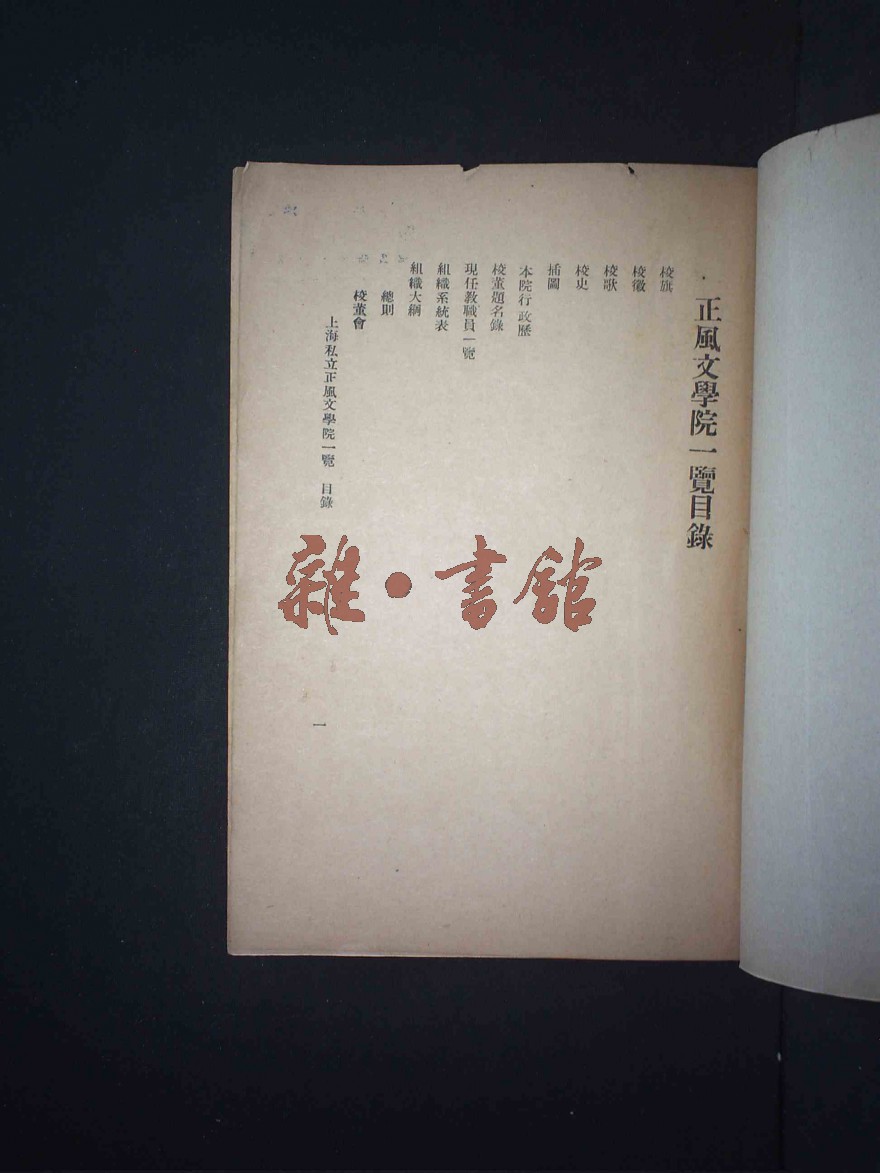 正風文學院一覽目錄
校旗
校徽
校歌
校史
插圖
本院行政歷
校董題名錄
現任教職員一覽
組織系統表
組織大綱
總則
校董會
上海私立正風文學院一覽 目錄
一
雜·書館